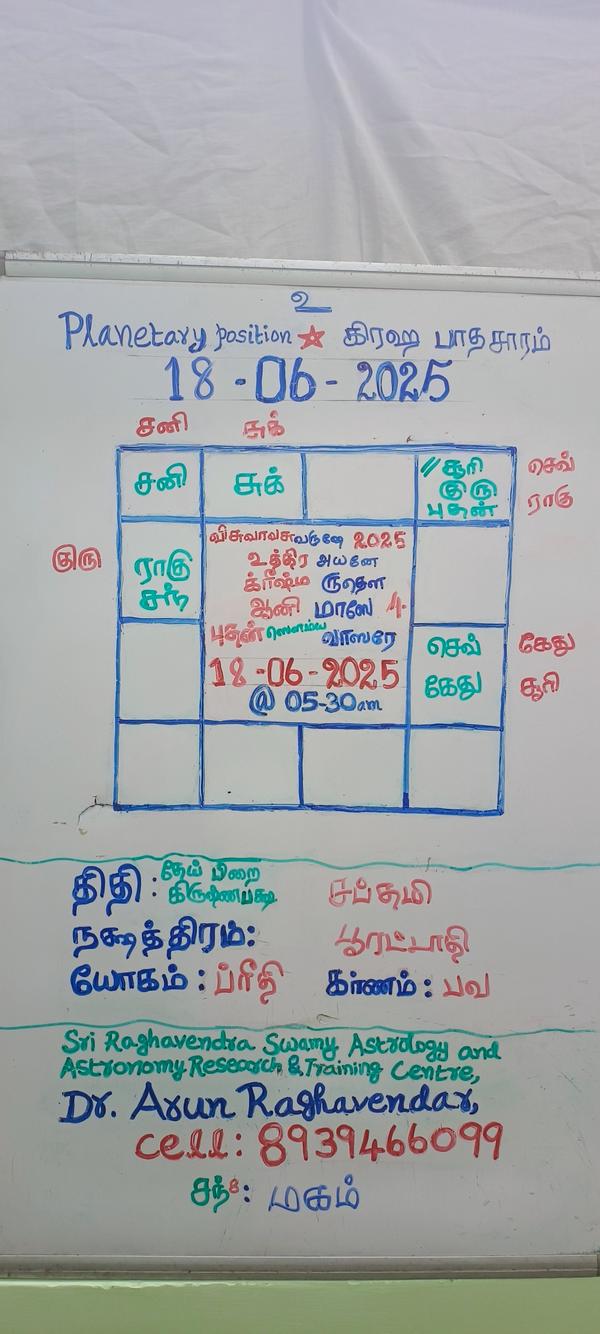 உ
Planetary position கிரஹ பாதசாரம்
18-06-2025
சனி சுக்
சனி சுக் // சூரி செவ்
குரு ராகு
புதன்
விசுவாவசுவருஷே 2025
உத்திர அயனே
குரு ராகு க்ரீஷ்ம ருதௌ
சந் ஆனி மாஸே 4.
புதன் ஸௌம்ய வாஸரே செவ் கேது
18-06-2025 கேது சூரி
@ 05-30am
திதி: தேய் பிறை சப்தமி
கிருஷ்ணபக்ஷ
நக்ஷத்திரம்: பூரட்டாதி
யோகம்: ப்ரீதி கர்ணம்: பவ
Sri Raghavendra Swamy Astrology and
Astronomy Research & Training Centre,
Dr. Arun Raghavendar,
cell: 8939466099
சந்8: மகம்